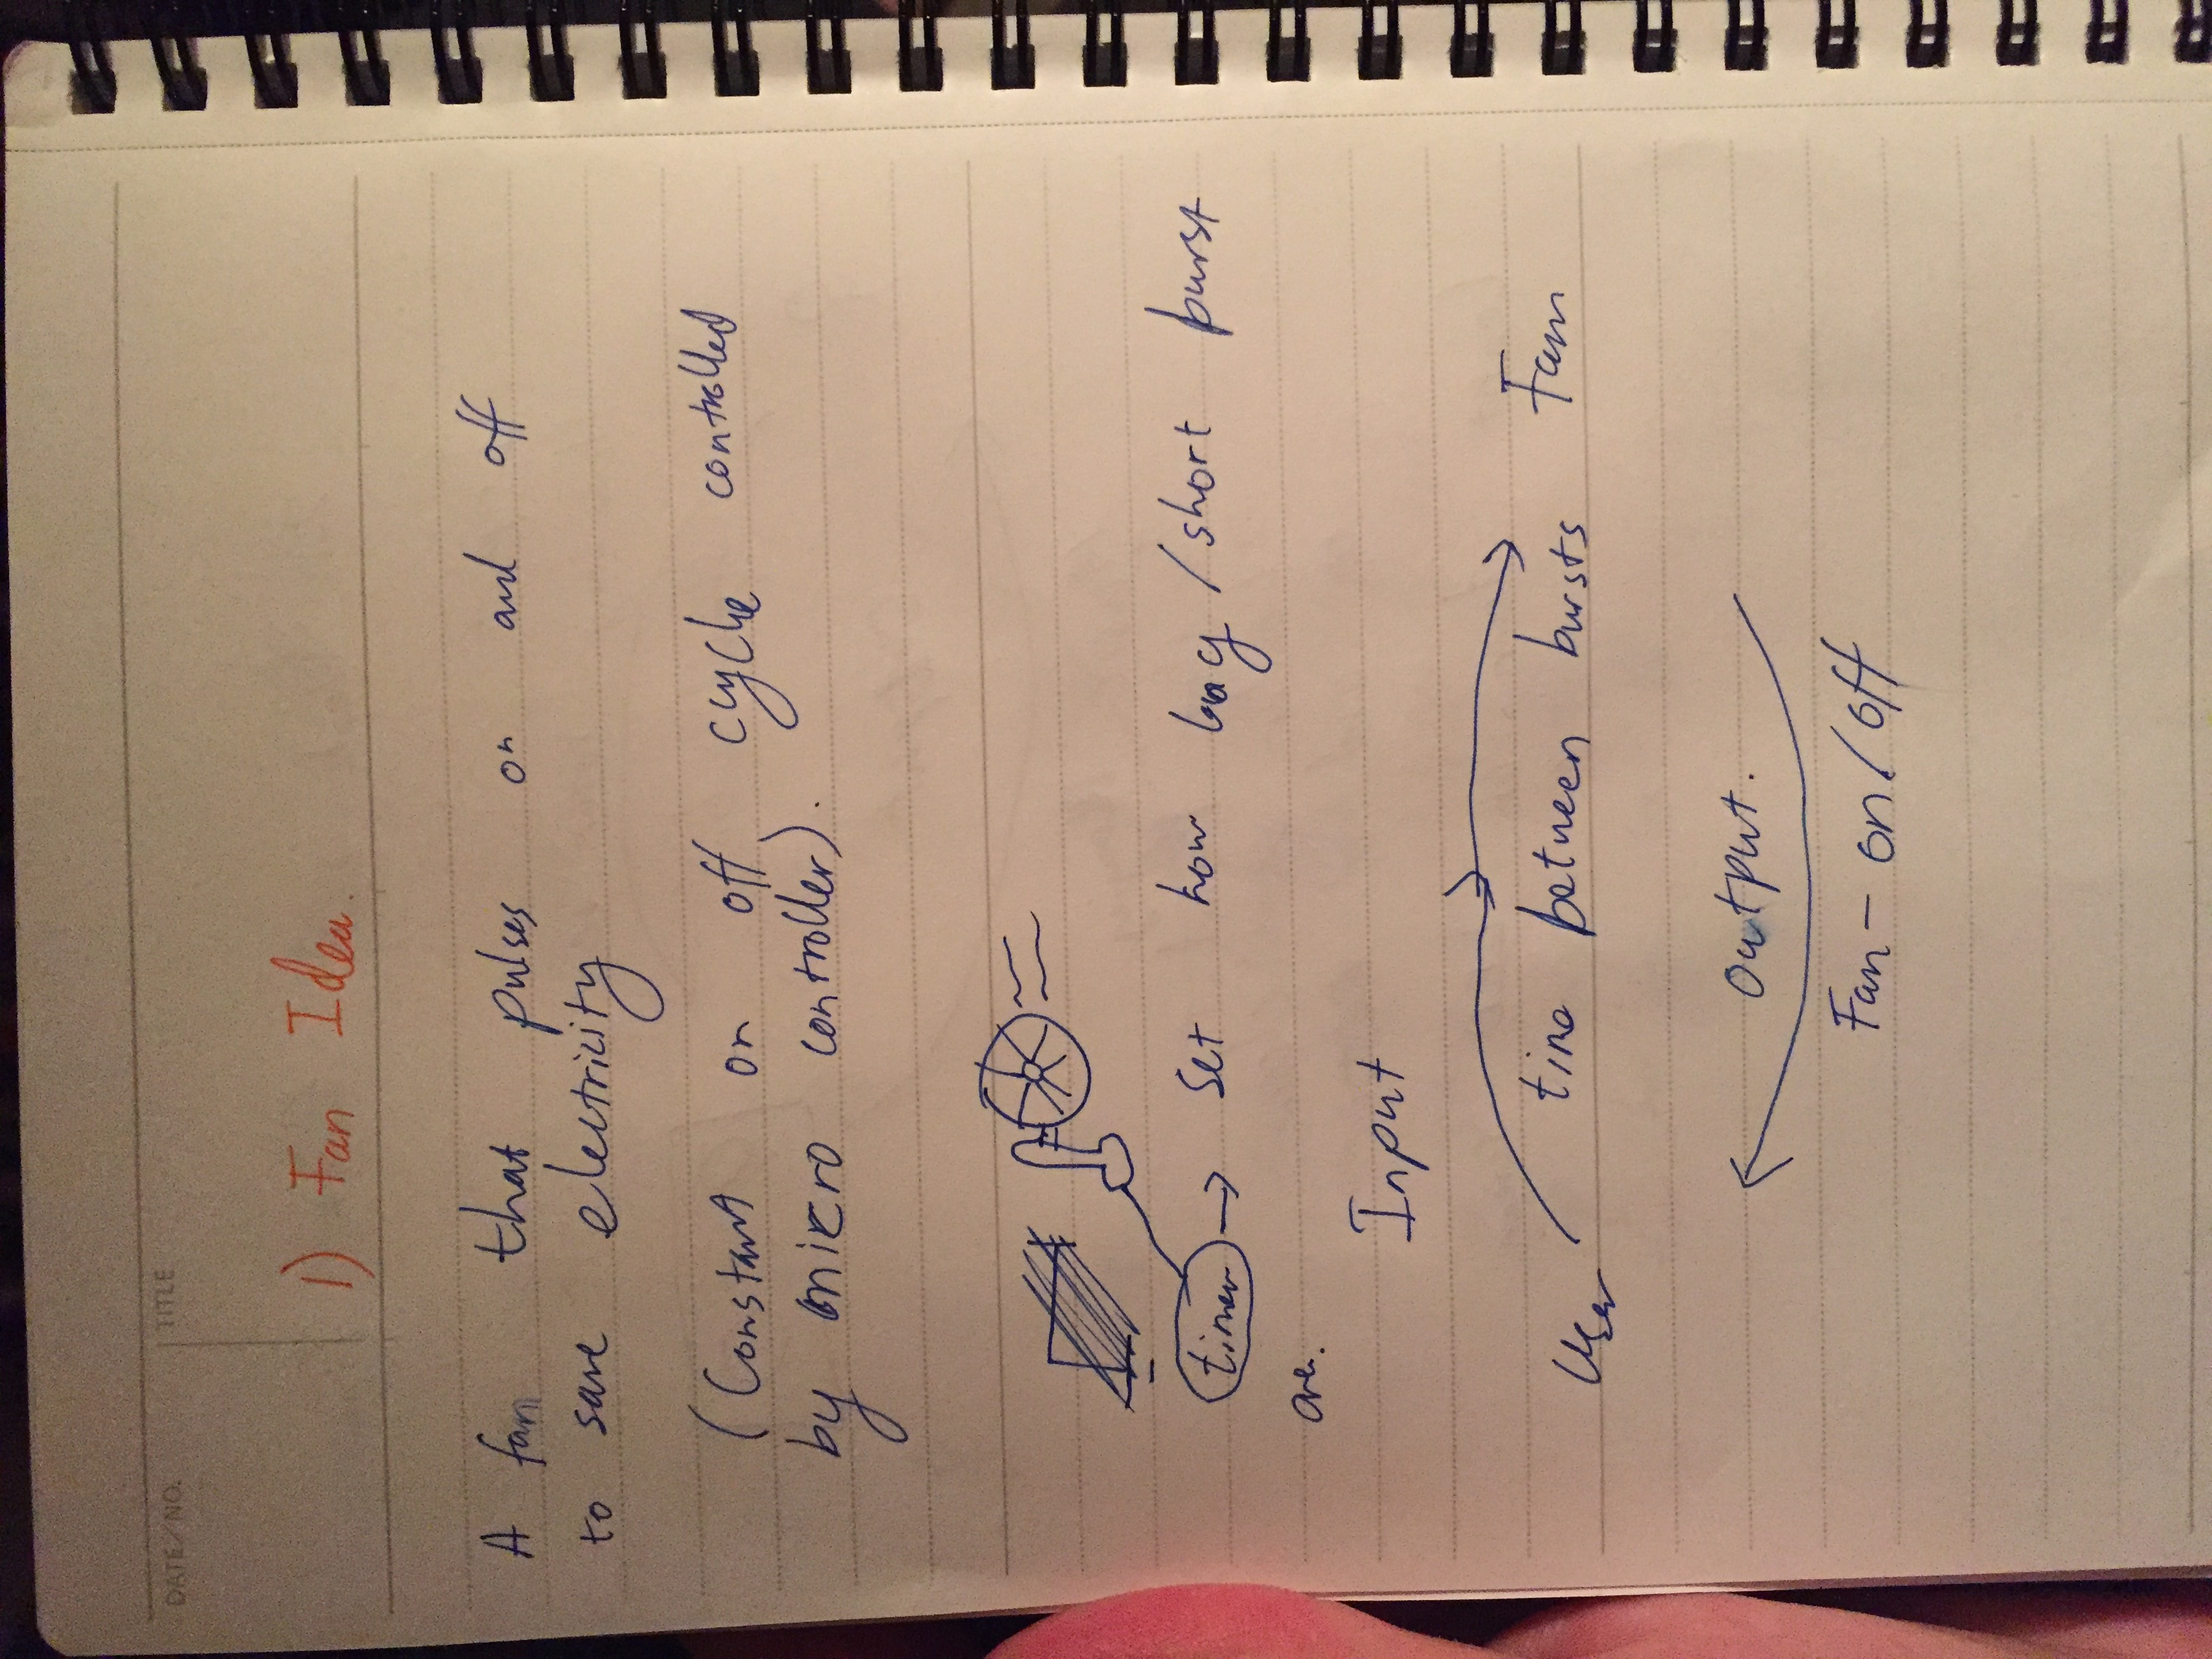 DATE/NO.
TITLE
1) Fan Idea.
A fan that pulses on and off
to save electricity
(Constant on off cycle controlled
by mikro controller).
timer → Set how long/short burst
are.
Input
User time between bursts Fan
Output.
Fan - on/off